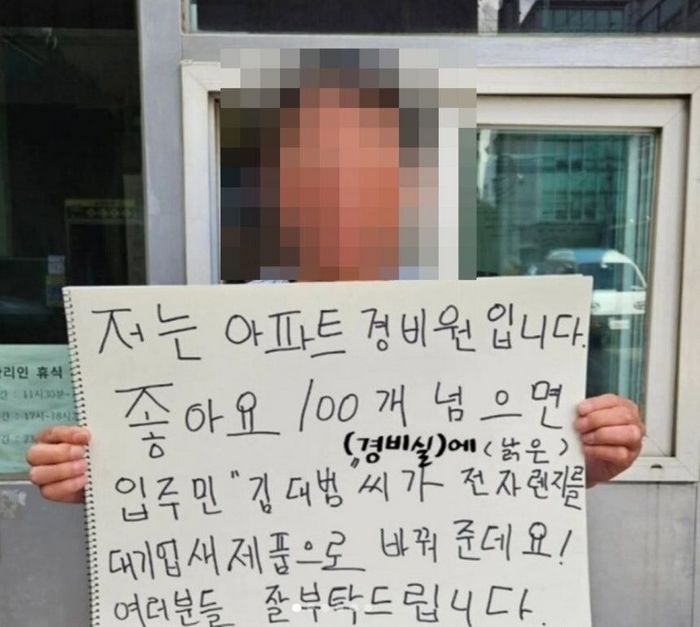 저는 아파트 경비원입니다.
좋아요 100개 넘으면
(경비실)에 <낡은>
입주민 "김대범"씨가 전자렌지를
대기업새제품으로 바꿔준데요!
여러분들 잘부탁드립니다.
리인 휴식
간 : 11시30분
간 : 17시~18시